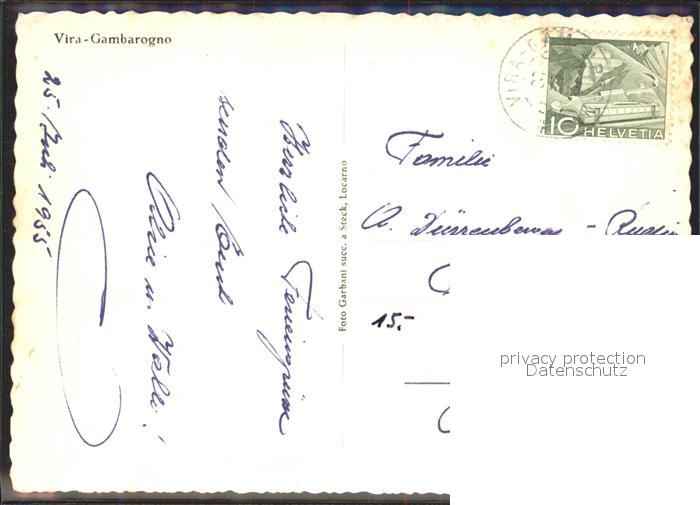 Vira - Gambarogno
25. Juli 1955
Herzliche Feriengrüsse
senden Euch
u.
Foto Garbani succ. a Steck, Locarno
VIRA-GAM
10 HELVETIA
Familie
A. Dürrenberger -
15.-
privacy protection
Datenschutz